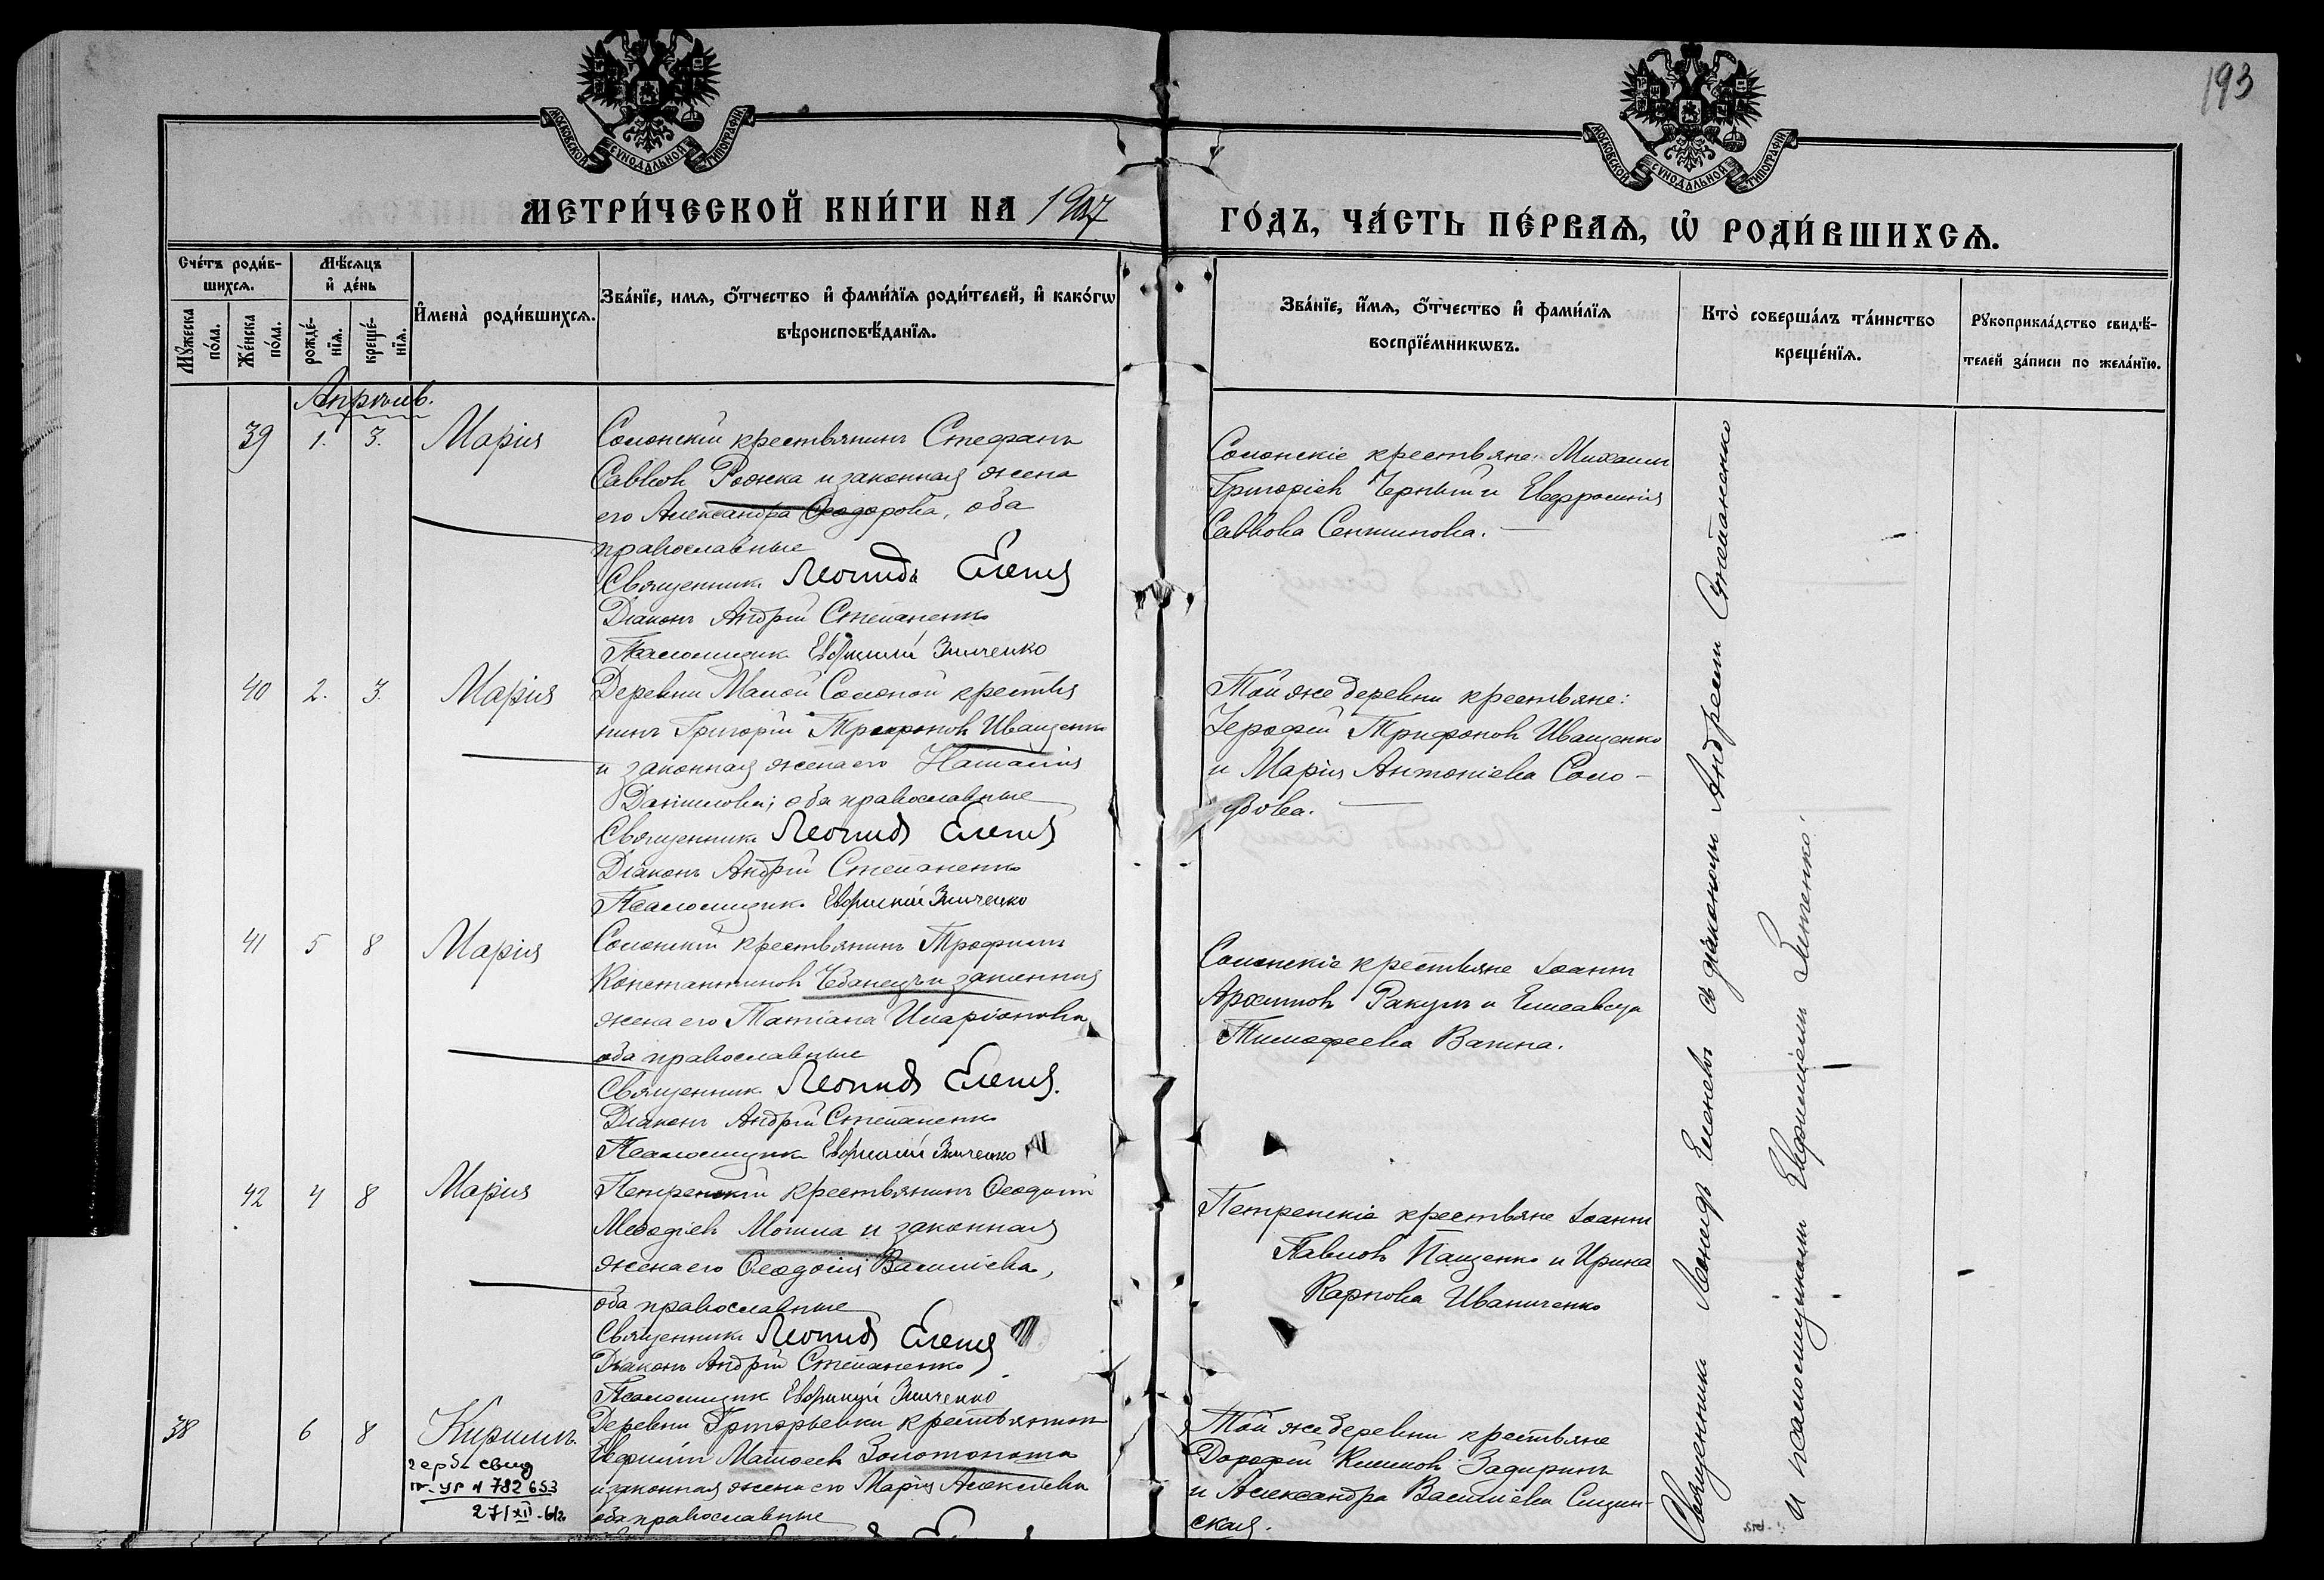 193
МОСКОВСКОЙ СѴНОДАЛЬНОЙ ТИПОГРАФІИ
МОСКОВСКОЙ СѴНОДАЛЬНОЙ ТИПОГРАФІИ
МЕТРИ́ЧЕСКОЙ КНИ́ГИ НА 1907
ГО́ДЪ, ЧА́СТЬ ПЕ́РВАѦ, Ѡ҆ РОДИ́ВШИХСѦ.
Сче́тъ роди́в-
шихсѧ.
Мꙋ́жеска по́ла.
Же́нска по́ла.
Мѣ́сѧцъ
и҆ де́нь
рожде́-
нїѧ.
креще́-
нїѧ.
И҆мена̀ роди́вшихсѧ.
Зва́нїе, имѧ, ѻ҆́тчество и҆ фами́лїѧ роди́телей, и҆ како́гѡ
вѣроисповѣ́данїѧ.
Зва́нїе, и҆́мѧ, ѻ҆́тчество и҆ фами́лїѧ
воспрїе́мникѡвъ.
Кто̀ соверша́лъ та́инство
креще́нїѧ.
Рꙋкоприкла́дство свидѣ́-
телей за́писи по жела́нїю.
Апрѣль.
39 1. 3. Марія
Солонскій крестьянинъ Стефанъ
Саввовъ Рожка и законная жена
его Александра Ѳеодорова, оба
православные
Священникъ Леонидъ Еленев
Діаконъ Андрей Степаненко
Псаломщикъ Евфимій Зинченко
Солонскіе крестьяне: Михаилъ
Григоріевъ Черный и Евфросинія
Саввова
40 2. 3. Марія
Деревни Малой Солоной крестья
нинъ Григорій Трифоновъ Иващенко
и законная жена его Наталія
Даніилова; оба православные
Священникъ Леонидъ Еленев
Діаконъ Андрей Степаненко
Псаломщикъ Евфимій Зинченко
Той же деревни крестьяне:
Іерофей Трифоновъ Иващенко
и Марія Антоніева Соло-
дова.
41 5 8 Марія
Солонскій крестьянинъ Трофимъ
Константиновъ Чбанецъ и законная
жена его Татіана Иларіонова
оба православные
Священникъ Леонидъ Еленев.
Діаконъ Андрей Степаненко
Псаломщикъ Евфимій Зинченко
Солонскіе крестьяне Іоаннъ
Архиповъ и Елисавета
Тимофеева
42 4 8 Марія
Петренскій крестьянинъ Ѳеодосій
Меѳодіевъ Могила и законная
жена его Ѳеодосія Василіева,
оба православные
Священникъ Леонидъ Еленев
Діаконъ Андрей Степаненко
Псаломщикъ Евфимій Зинченко
Петренскіе крестьяне Іоаннъ
Павловъ Пащенко и Ирина
Карпова Иваниченко
38 6 8 Кириллъ.
герб. свид
УР N 782653
27/XII-
Деревни Григорьевки крестьянинъ
Евфимій Матѳеевъ Золотопупъ
и законная жена его Марія Алексіева
оба православные
Той же деревни крестьяне
Дорофей Климовъ Задиринъ
и Александра Василіева
ская.
Священникъ Леонидъ Еленевъ съ діакономъ Андреемъ Степаненко
и псаломщикомъ Евфиміемъ Зинченко.